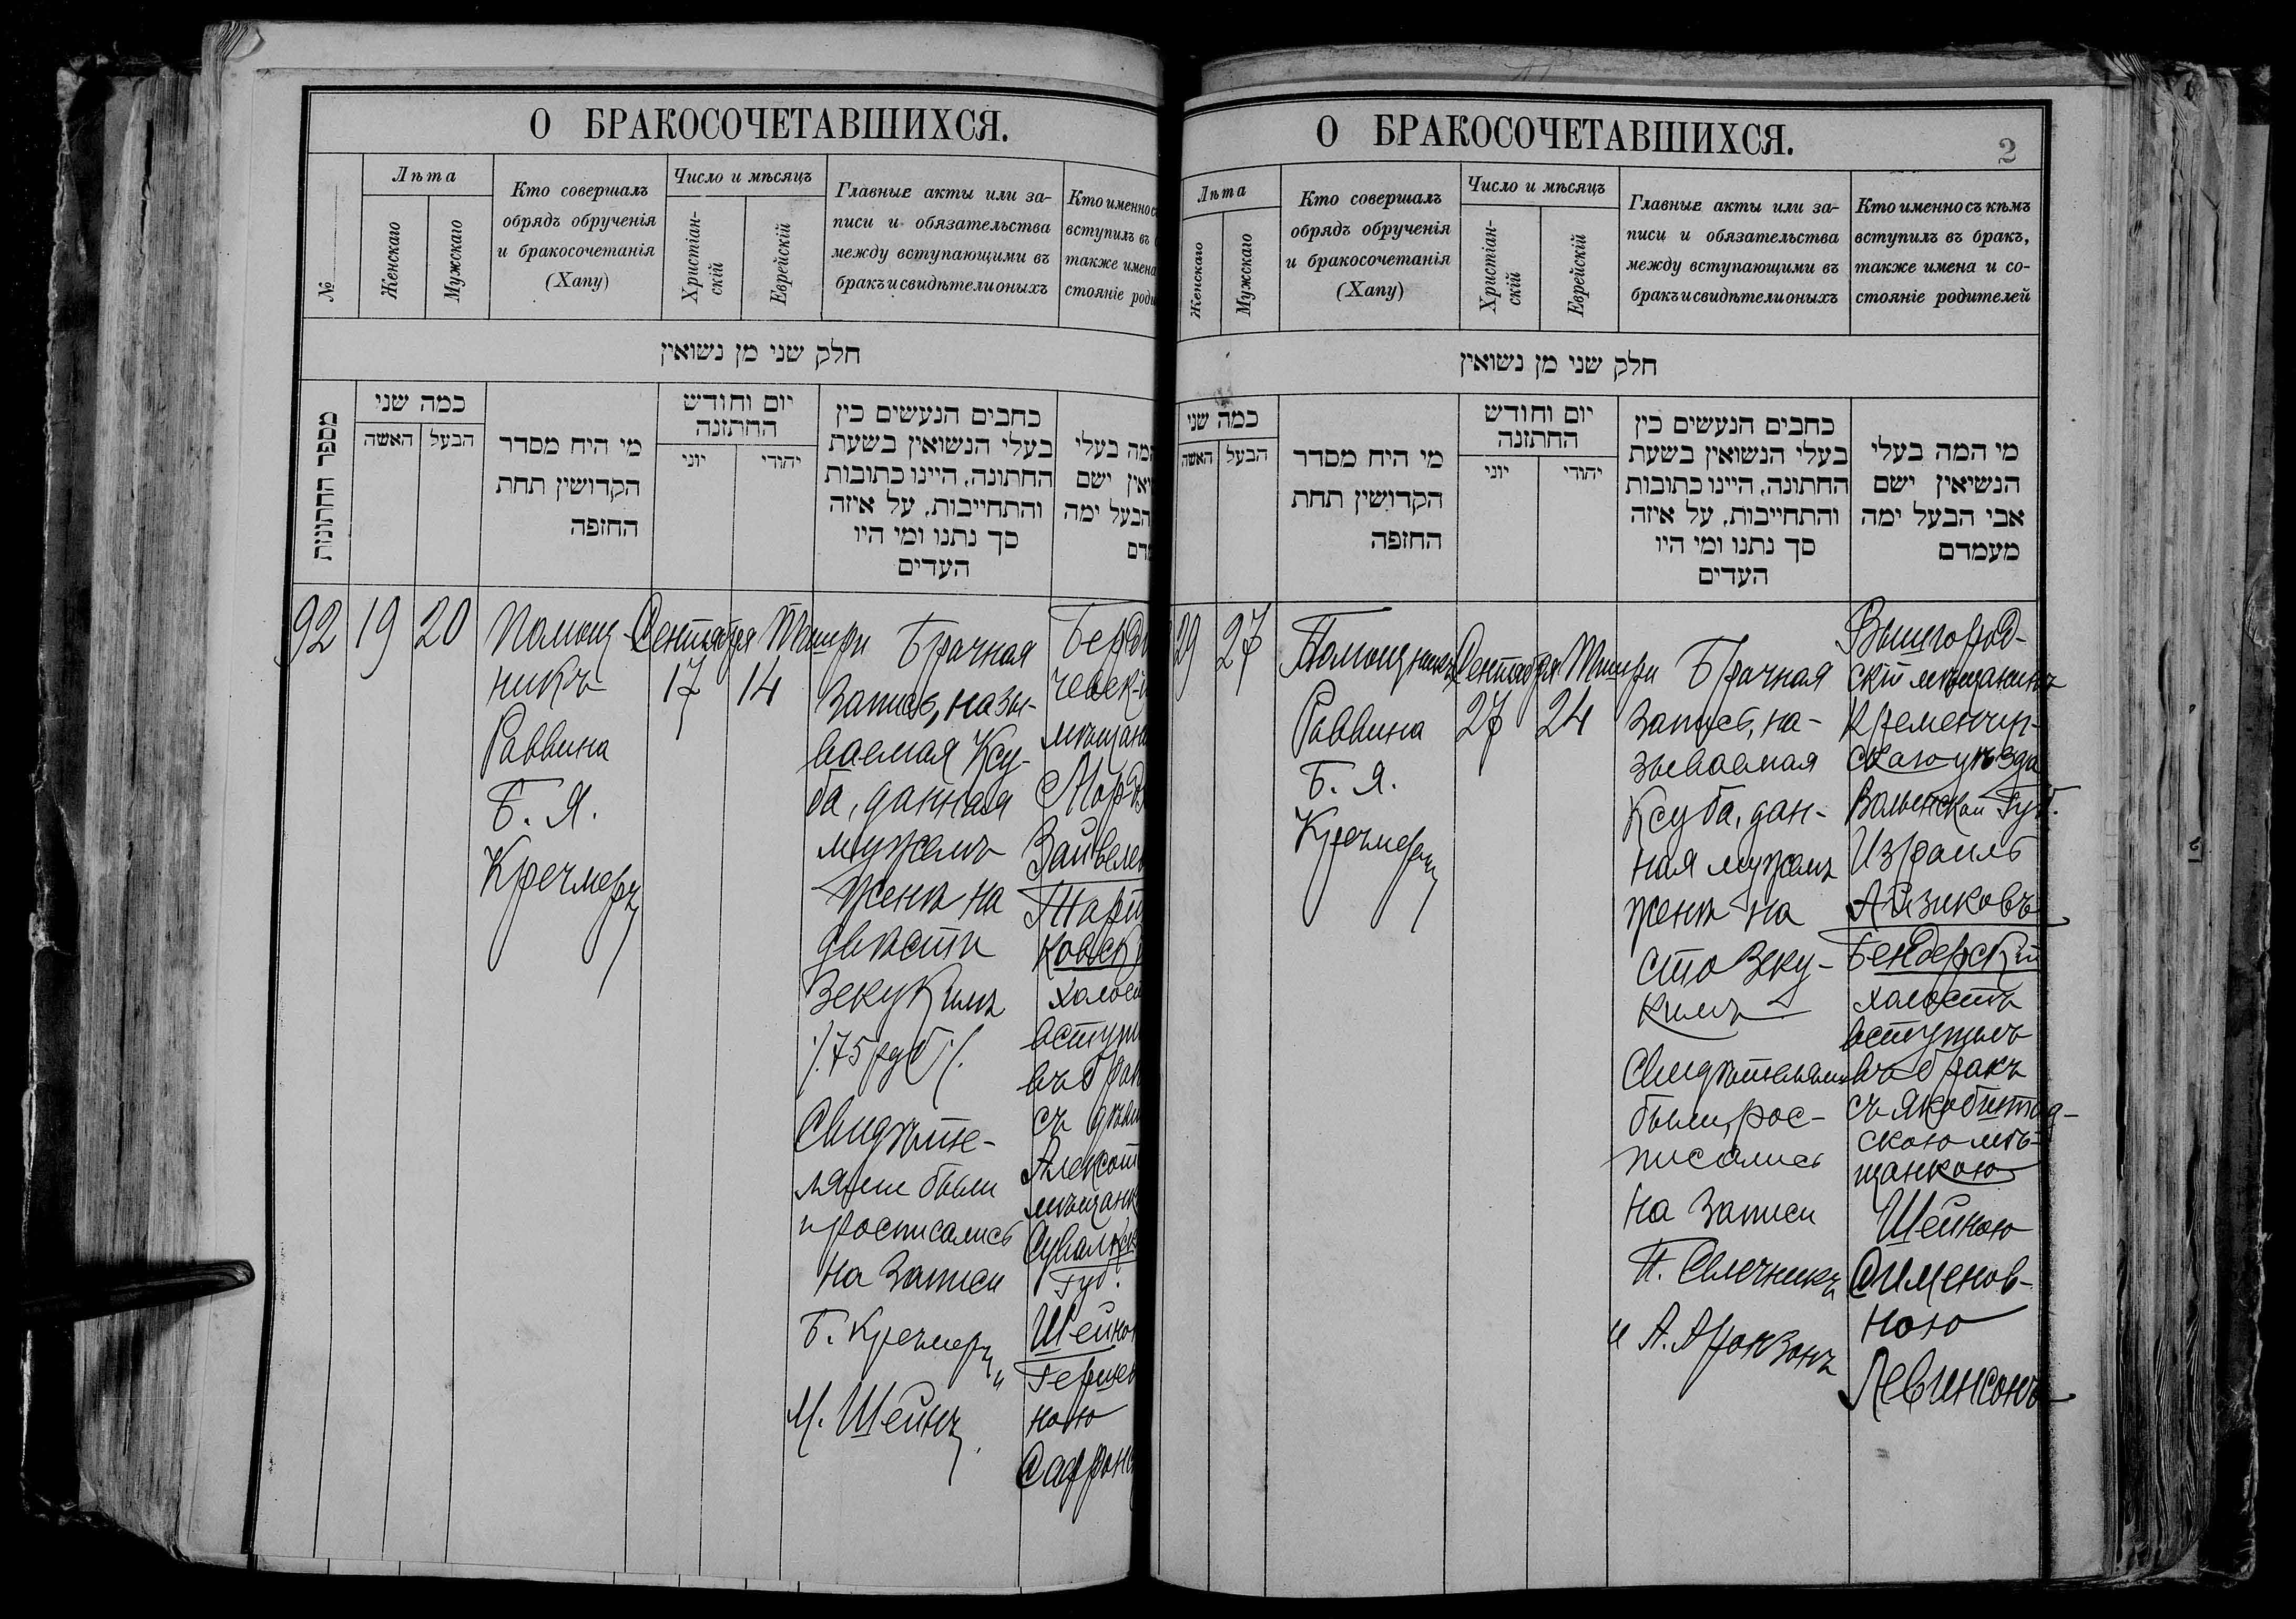 О БРАКОСОЧЕТАВШИХСЯ.
№
Лѣта
Женскаго
Мужскаго
Кто совершалъ
обрядъ обрученія
и бракосочетанія
(Хапу)
Число и мѣсяцъ
Христіан-
скій
Еврейскій
Главные акты или за-
писи и обязательства
между вступающими въ
бракъ и свидѣтели оныхъ
Кто именно с
вступилъ въ
также имена
стояніе роди
חלק שני מן נשואין
מספר החתונות
כמה שני
האשה
הבעל
מי היח מסדר
הקדושין תחת
החזפה
יום וחודש
החתזנה
יוני
יהודי
כחבים הנעשים כין
בעלי הנשואין בשעת
החתונה, היינו כתובות
והתחייבות, על איזה
סך נתנו ומי היו
העדים
המה בעלי
ישם
הבעל ימה
92
19
20
Помощ-
никъ
Раввина
Б. Я.
Кречмеръ
Сентября
17
Тишри
14
Брачная
запись, назы-
ваемая Ксу-
ба, данная
мужемъ
женѣ на
двѣсти
Зекукимъ
/.75 руб/.
Свидѣте-
лями были
и росписались
на записи
Б. Кречмеръ и
М. Шейнъ.
Берди
чевск
мѣщани
Мордх
Зайвеле
Тари
ковск
холост
вступи
въ брак
съ дѣви
Алексот
мѣщанк
Сувалкск
Губ.
Шейно
Гершев
ною
Сафронс
О БРАКОСОЧЕТАВШИХСЯ.
2
Лѣта
Женскаго
Мужскаго
Кто совершалъ
обрядъ обрученія
и бракосочетанія
(Хапу)
Число и мѣсяцъ
Христіан-
скій
Еврейскій
Главные акты или за-
писи и обязательства
между вступающими въ
бракъ и свидѣтели оныхъ
Кто именно съ кѣмъ
вступилъ въ бракъ,
также имена и со-
стояніе родителей
חלק שני מן נשואין
כמה שני
האשה
הבעל
מי היח מסדר
הקדושין תחת
החזפה
יום וחודש
החתזנה
יוני
יהודי
כחבים הנעשים כין
בעלי הנשואין בשעת
החתונה, היינו כתובות
והתחייבות, על איזה
סך נתנו ומי היו
העדים
מי המה בעלי
הנשיאין ישם
אבי הבעל ימה
מעמדם
29
27
Помощникъ
Раввина
Б. Я.
Кречмеръ
Сентября
27
Тишри
24
Брачная
запись, на-
зываемая
Ксуба, дан-
ная мужемъ
женѣ на
сто Зеку-
кимъ
Свидѣтелями
были, рос-
писались
на записи
П. Свечникъ
и А. Аронзонъ
Вышгород-
скій мѣщанинъ
Кременчуг-
скаго уѣзда
Волынской Губ.
Израиль
Айзиковъ
Бендерскій
холостъ
вступилъ
въ бракъ
съ Якобштад-
скою мѣ-
щанкою
Шейною
Сименов-
ною
Левинсонъ